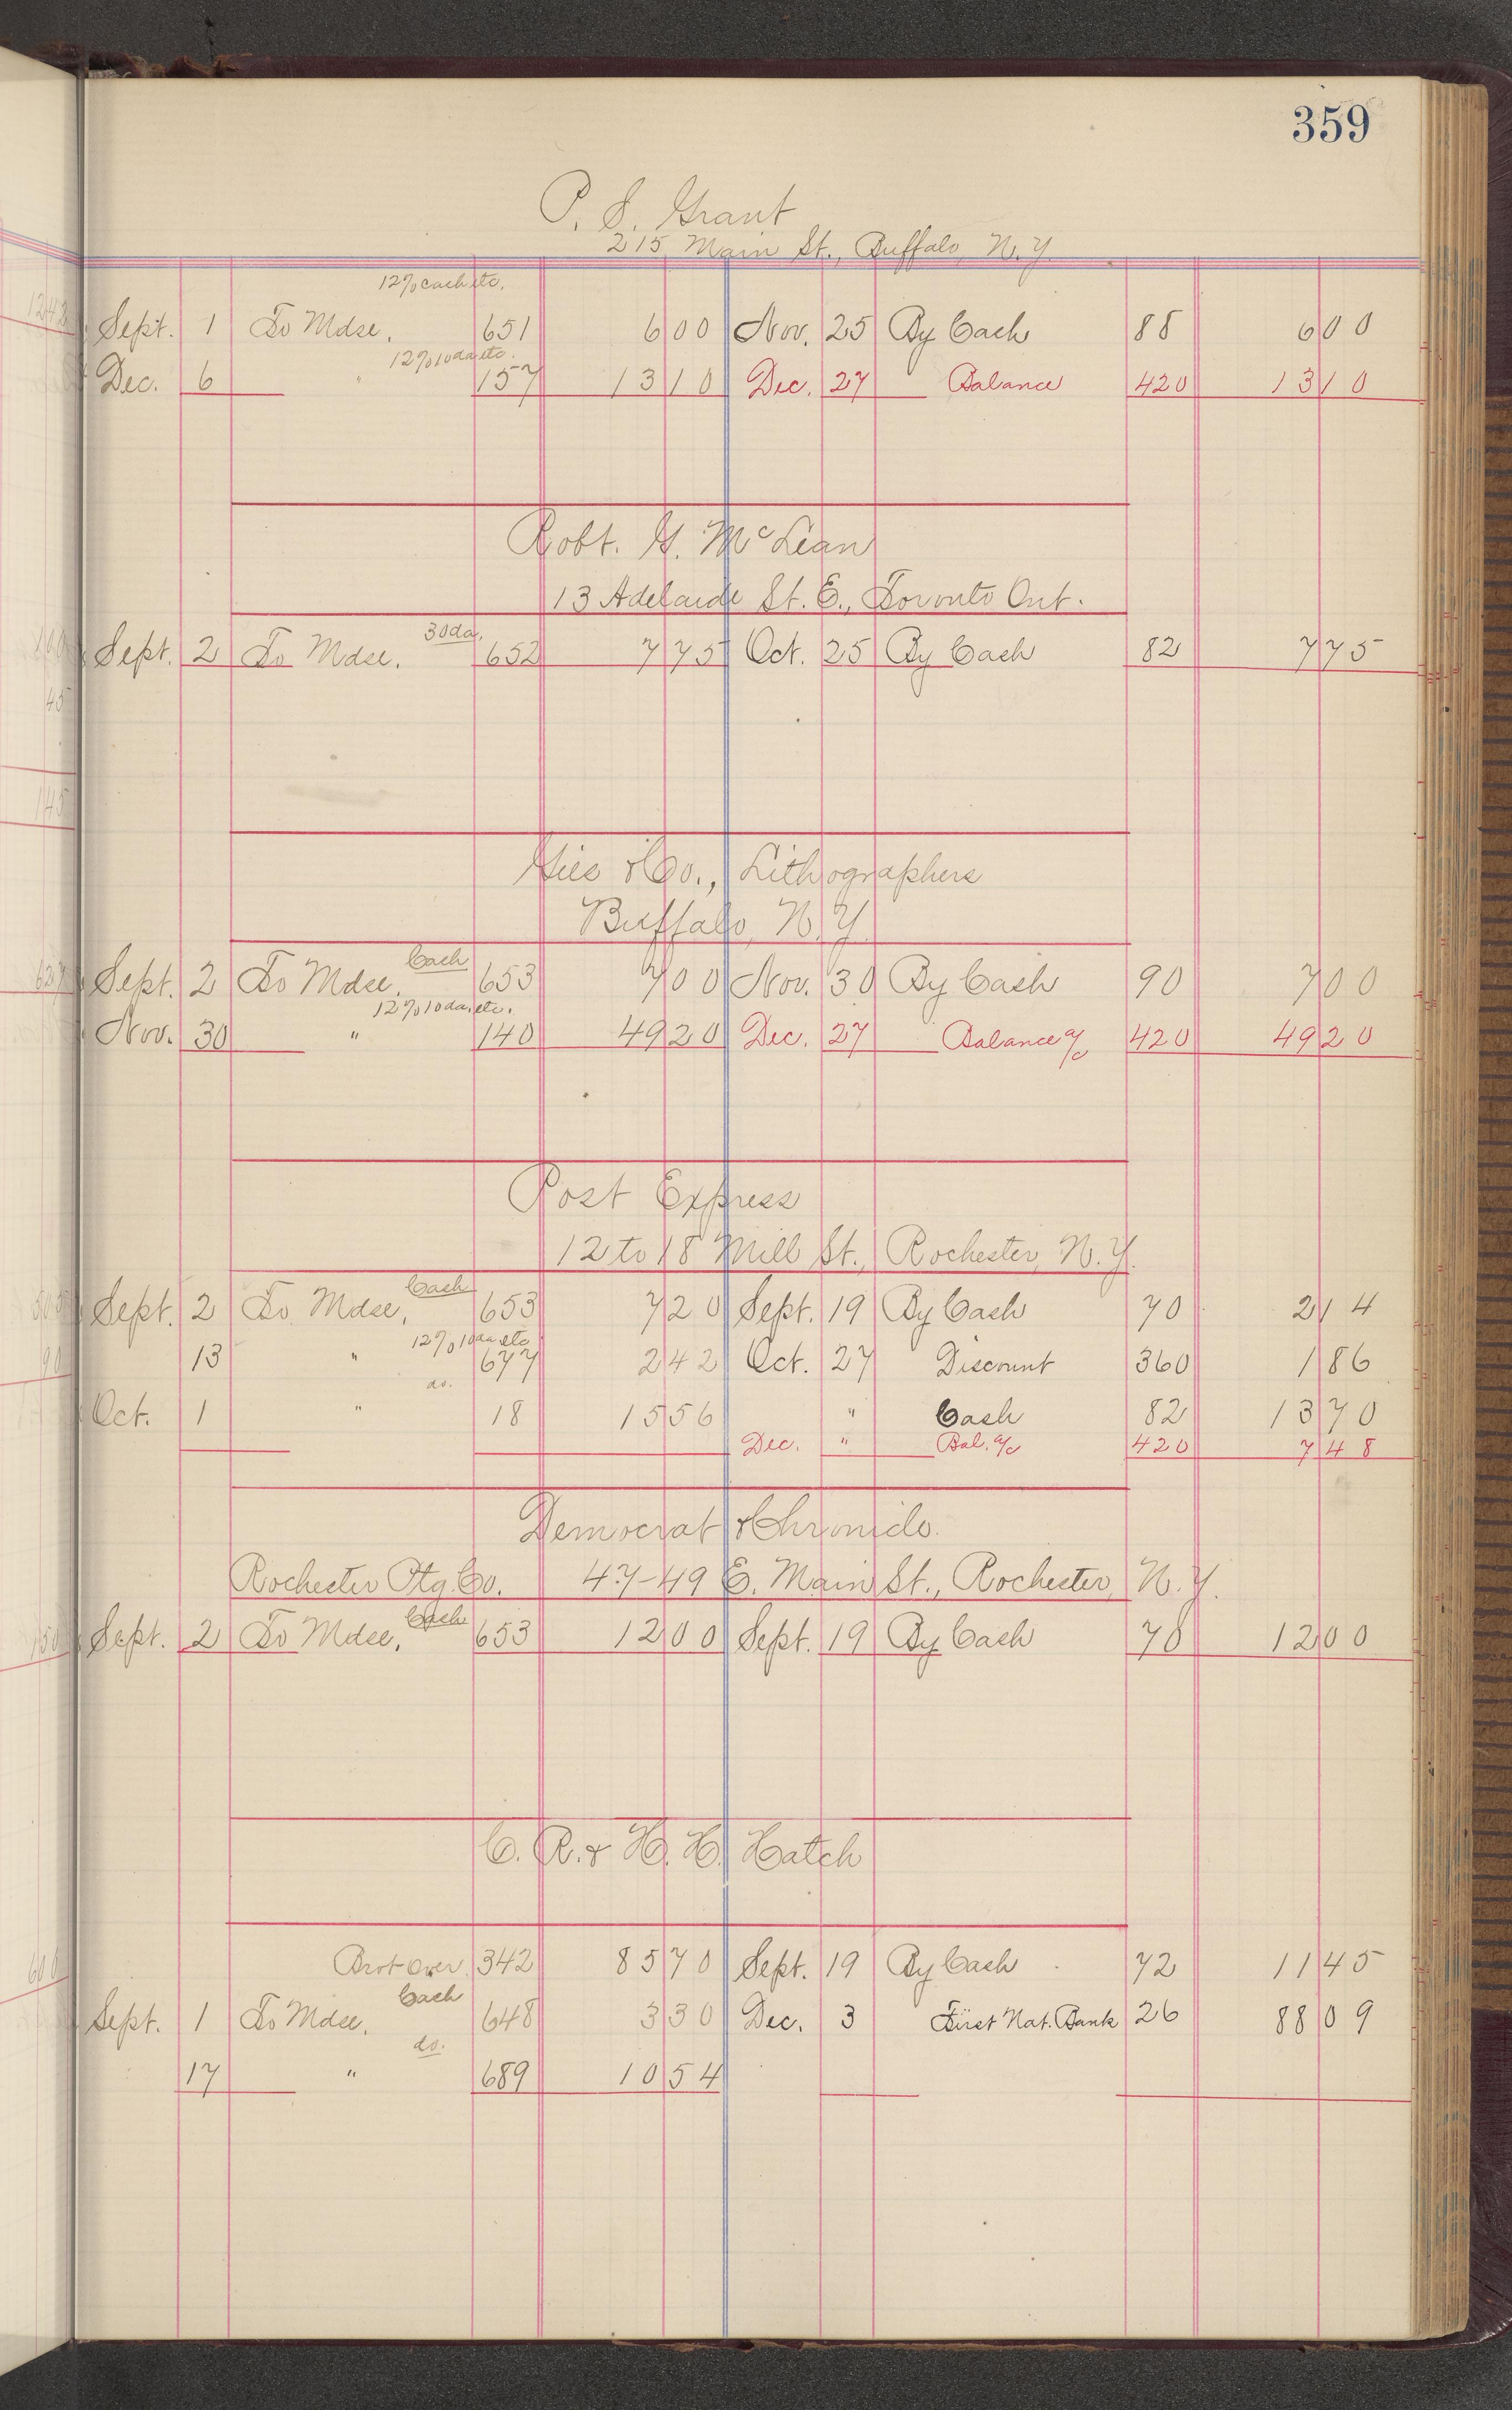 359
P. S. Grant
215 Main St., Buffalo, N.Y.
12% cash etc.
Sept. 1 To Mdse. 651 6 00 Nov. 25 By Cash 88 6 00
12% 10 da etc.
Dec. 6 " 157 13 10 Dec. 27 Balance 420 13 10
Robt. G. McLean
13 Adelaide St. E., Toronto Ont.
30 da.
Sept. 2 To Mdse. 652 7 75 Oct. 25 By Cash 82 7 75
Gies & Co., Lithographers
Buffalo, N.Y.
Cash
Sept. 2 To Mdse. 653 7 00 Nov. 30 By Cash 90 7 00
12% 10 da. etc.
Nov. 30 " 140 49 20 Dec. 27 Balance a/c 420 49 20
Post Express
12 to 18 Mill St., Rochester, N.Y.
Cash
Sept. 2 To Mdse. 653 7 20 Sept. 19 By Cash 70 2 14
12% 10 da etc
13 " 677 2 42 Oct. 27 Discount 360 1 86
do.
Oct. 1 " 18 15 56 " Cash 82 13 70
Dec. " Bal. a/c 420 7 48
Democrat & Chronicle.
Rochester Ptg. Co. 47-49 E. Main St., Rochester, N.Y.
Cash
Sept. 2 To Mdse. 653 12 00 Sept. 19 By Cash 70 12 00
C. R. & H. H. Hatch
Brot over 342 85 70 Sept. 19 By Cash 72 11 45
Cash
Sept. 1 To Mdse. 648 3 30 Dec. 3 First Nat. Bank 26 88 09
do.
17 " 689 10 54